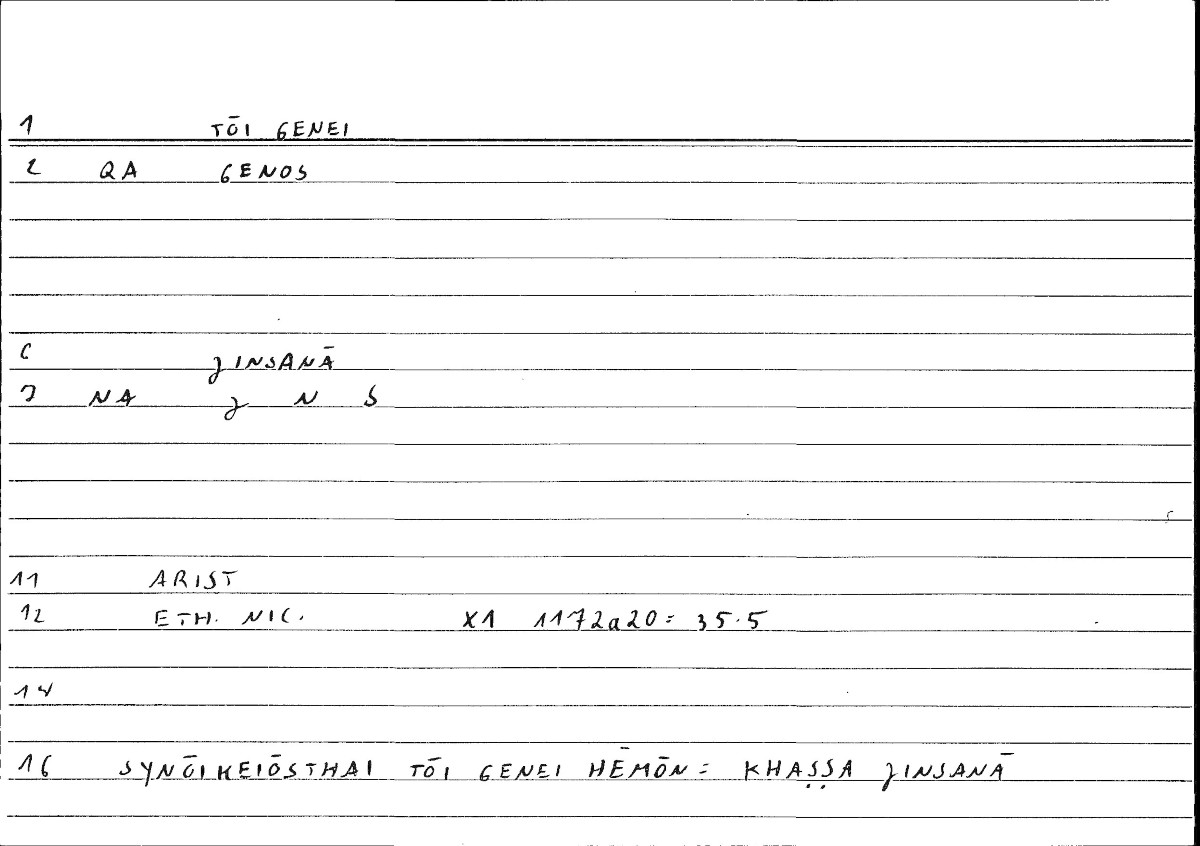 1 TŌI GENEI
2 QA GENOS
6 JINSANĀ
7 NA J N S
11 ARIST
12 ETH. NIC. X1 1172a20 = 35.5
14
16 SYNŌIKEIŌSTHAI TŌI GENEI HĒMŌN = KHAṢṢA JINSANĀ